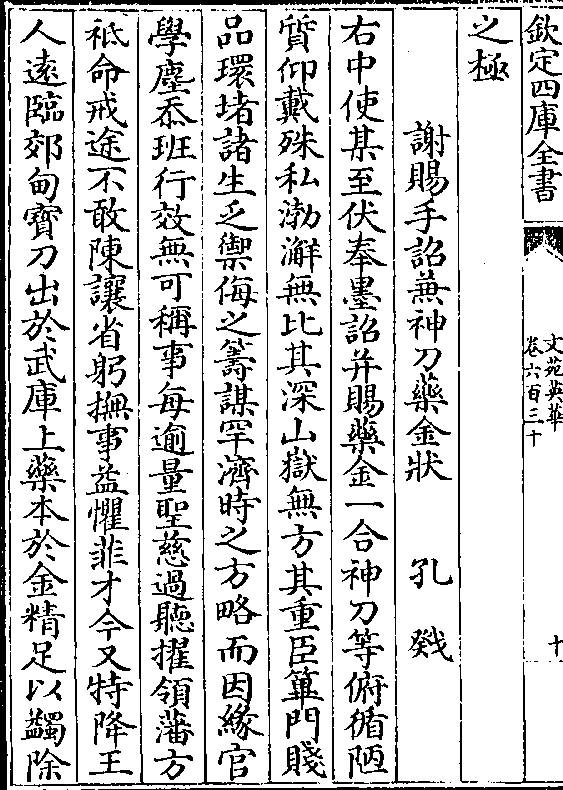 欽定四庫全書
文苑英華
卷六百三十
十
之極
謝賜手詔兼神刀藥金狀 孔戣
右中使某至伏奉墨詔并賜藥金一合神刀等俯循陋
質仰戴殊私渤澥無比其深山嶽無方其重臣蓽門賤
品環堵諸生乏禦侮之籌謀罕濟時之方略而因緣官
學塵忝班行效無可稱事每逾量聖慈過聽擢領藩方
祗命戒途不敢陳讓省躬撫事益懼菲才今又特降王
人遠臨郊甸寶刀出於武庫上藥本於金精足以蠲除